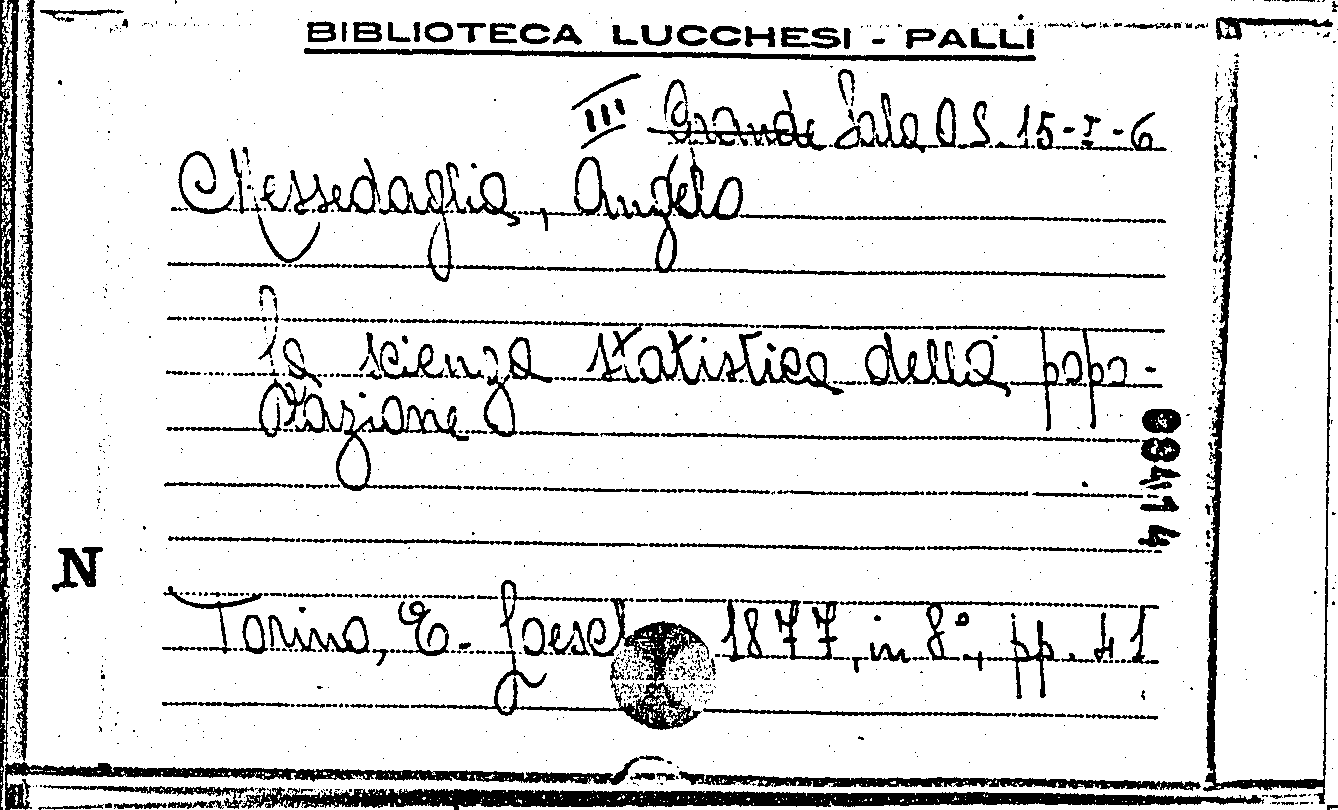 BIBLIOTECA LUCCHESI - PALLI
III Grande Sala O S. 15-I-6
Messedaglia, Angelo
La scienza statistica della popo-
lazione
68414
N
Torino, E. Loesch 1877, in 8°, pp. 41